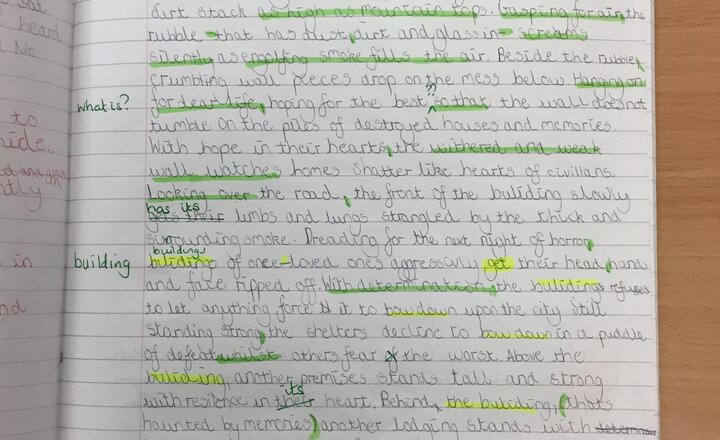 dirt stack as high as mountain tops. Gasping for air, the
rubble - that has dust, dirt and glass in - screams
silently as engolfing smoke fills the air. Beside the rubble,
crumbling wall pieces drop on the mess below. Hanging on
what is?
for dear life, hoping for the best ?? so that the wall doesnot
tumble on the piles of destroyed houses and memories.
With hope in their hearts, the withered and weak
wall watches homes shatter like hearts of civillans.
Looking over the road, the front of the buliding slowly
has its
gets their limbs and lungs strangled by the thick and
surrounding smoke. Dreading for the next night of horror,
buildings
building
bulidings of once-loved ones aggressivly get their head, hand
and face ripped off. With determination, the bulidings refuses
to let anything force it to bow down upon the city. Still
standing strong, the shelters decline to bow down in a puddle
of defeat whilst others fear of the worst. Above the
buliding, another premises stands tall and strong
its
with resilience in their heart. Behind, the buliding, (thats
haunted by memories) another lodging stands with
sat
heard
No
to
ide...
ntly
in
nd